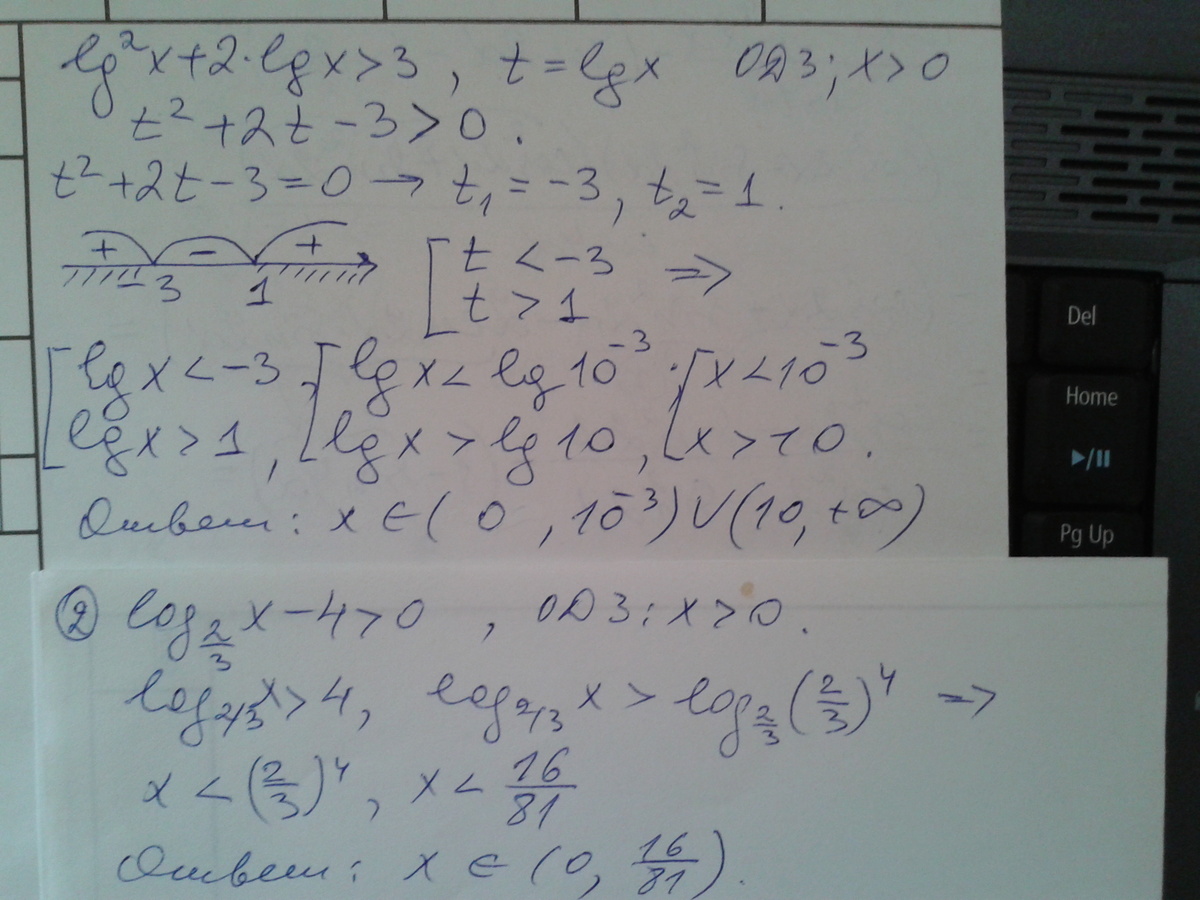 lg²x+2·lgx>3, t=lgx ОДЗ; x>0
t²+2t-3>0.
t²+2t-3=0 → t₁=-3, t₂=1.
+ - +
-3 1
[t<-3
t>1 ⇒
[lgx<-3 ; [lgx<lg10⁻³ ; [x<10⁻³
lgx>1, lgx>lg10, x>10.
Ответ: x∈(0, 10⁻³)∪(10, +∞)
② log_{2/3} x-4>0, ОДЗ: x>0.
log_{2/3} x>4, log_{2/3} x > log_{2/3} (2/3)⁴ ⇒
x<(2/3)⁴, x<16/81
Ответ: x∈(0, 16/81).
Del
Home
▶/II
Pg Up